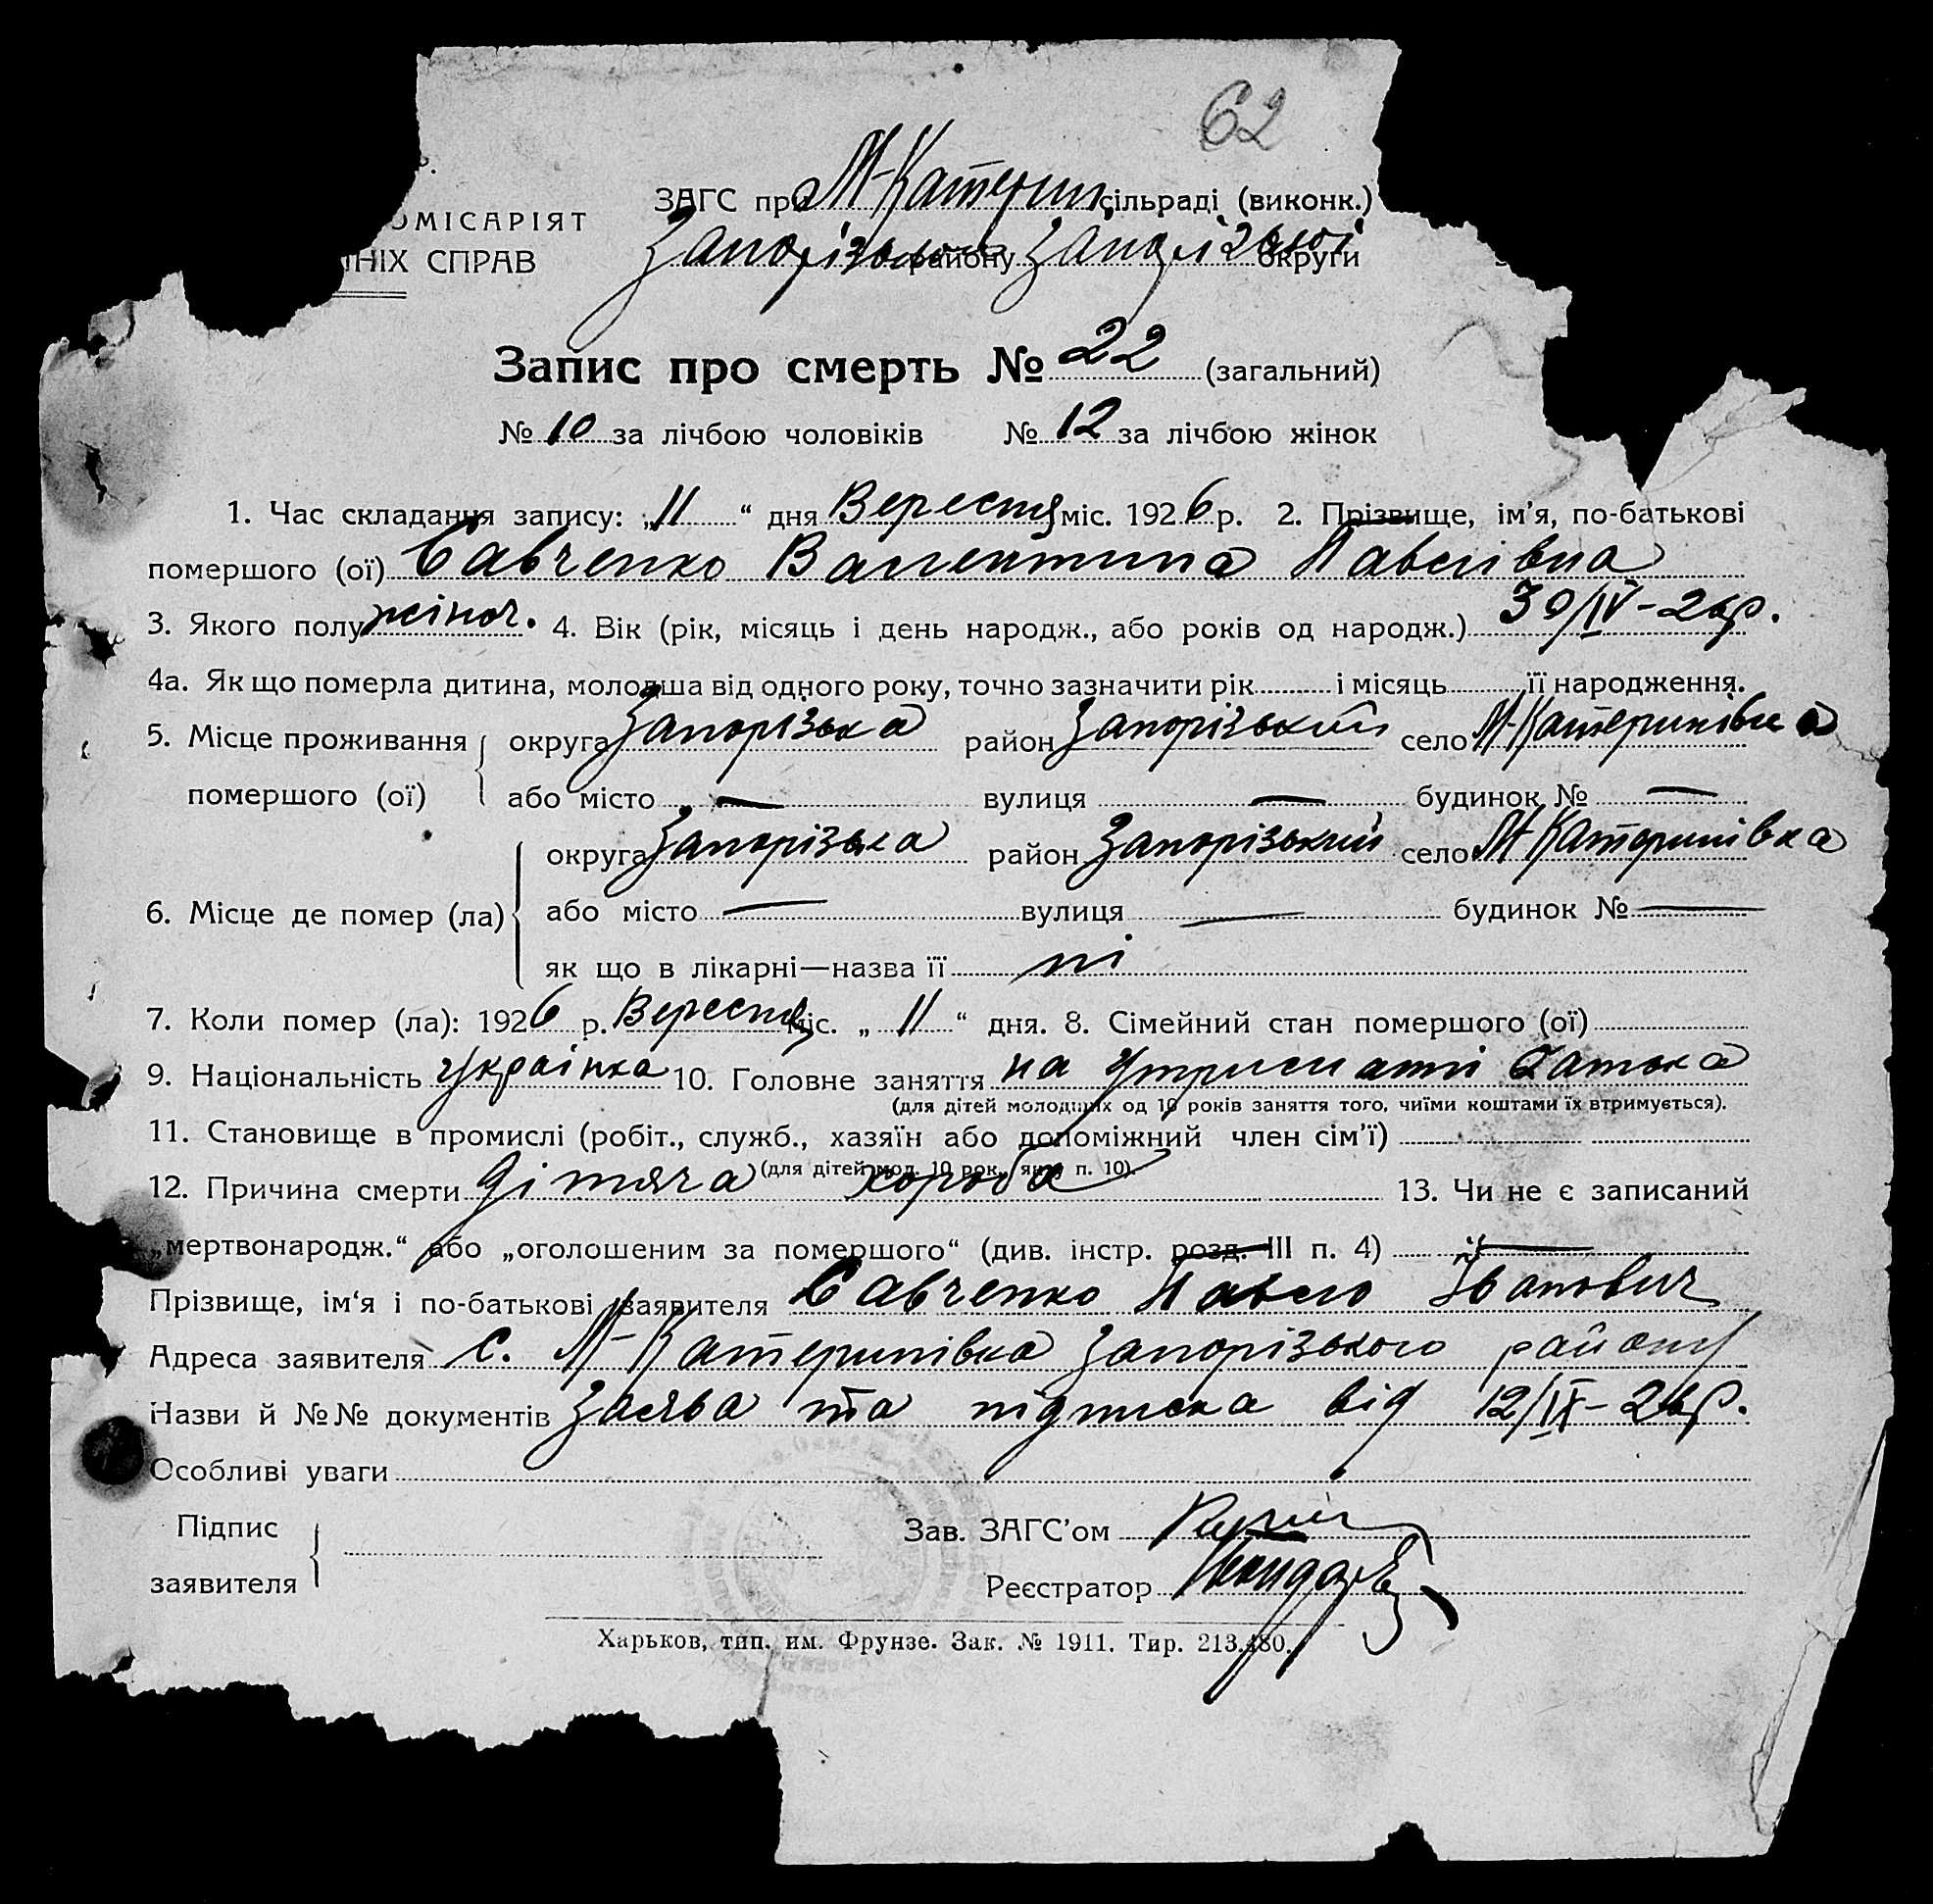 62
ОМІСАРІЯТ
НІХ СПРАВ
ЗАГС при М-Катерин сільраді (виконк.)
Запорізького району Запорізької округи
Запис про смерть № 22 (загальний)
№ 10 за лічбою чоловіків № 12 за лічбою жінок
1. Час складання запису: „11“ дня Вересня міс. 1926 р. 2. Прізвище, ім’я, по-батькові
помершого (ої) Савченко Валентина Павлівна
3. Якого полу жіноч. 4. Вік (рік, місяць і день народж., або років од народж.) 30/IV-26р.
4а. Як що померла дитина, молодша від одного року, точно зазначити рік і місяць її народження.
5. Місце проживання округа Запорізька район Запорізький село М-Катеринівка
помершого (ої) або місто — вулиця — будинок № —
округа Запорізька район Запорізький село М-Катеринівка
6. Місце де помер (ла) або місто — вулиця — будинок № —
як що в лікарні—назва її ні
7. Коли помер (ла): 1926 р. Вересня міс. „11“ дня. 8. Сімейний стан помершого (ої)
9. Національність українка 10. Головне заняття на утриманні батька
(для дітей молодших од 10 років заняття того, чиїми коштами їх втримується).
11. Становище в промислі (робіт., служб., хазяїн або допоміжний член сім’ї)
(для дітей мол. 10 рок., як у п. 10).
12. Причина смерти дітяча хороба 13. Чи не є записаний
„мертвонародж.“ або „оголошеним за помершого“ (див. інстр. розд. III п. 4) —
Прізвище, ім‘я і по-батькові заявителя Савченко Павло Іванович
Адреса заявителя с. М-Катеринівка Запорізького району
Назви й №№ документів Заява та підписка від 12/IX-26р.
Особливі уваги
Підпис
заявителя
Зав. ЗАГС’ом
Реєстратор
Харьков, тип. им. Фрунзе. Зак. № 1911. Тир. 213.480.